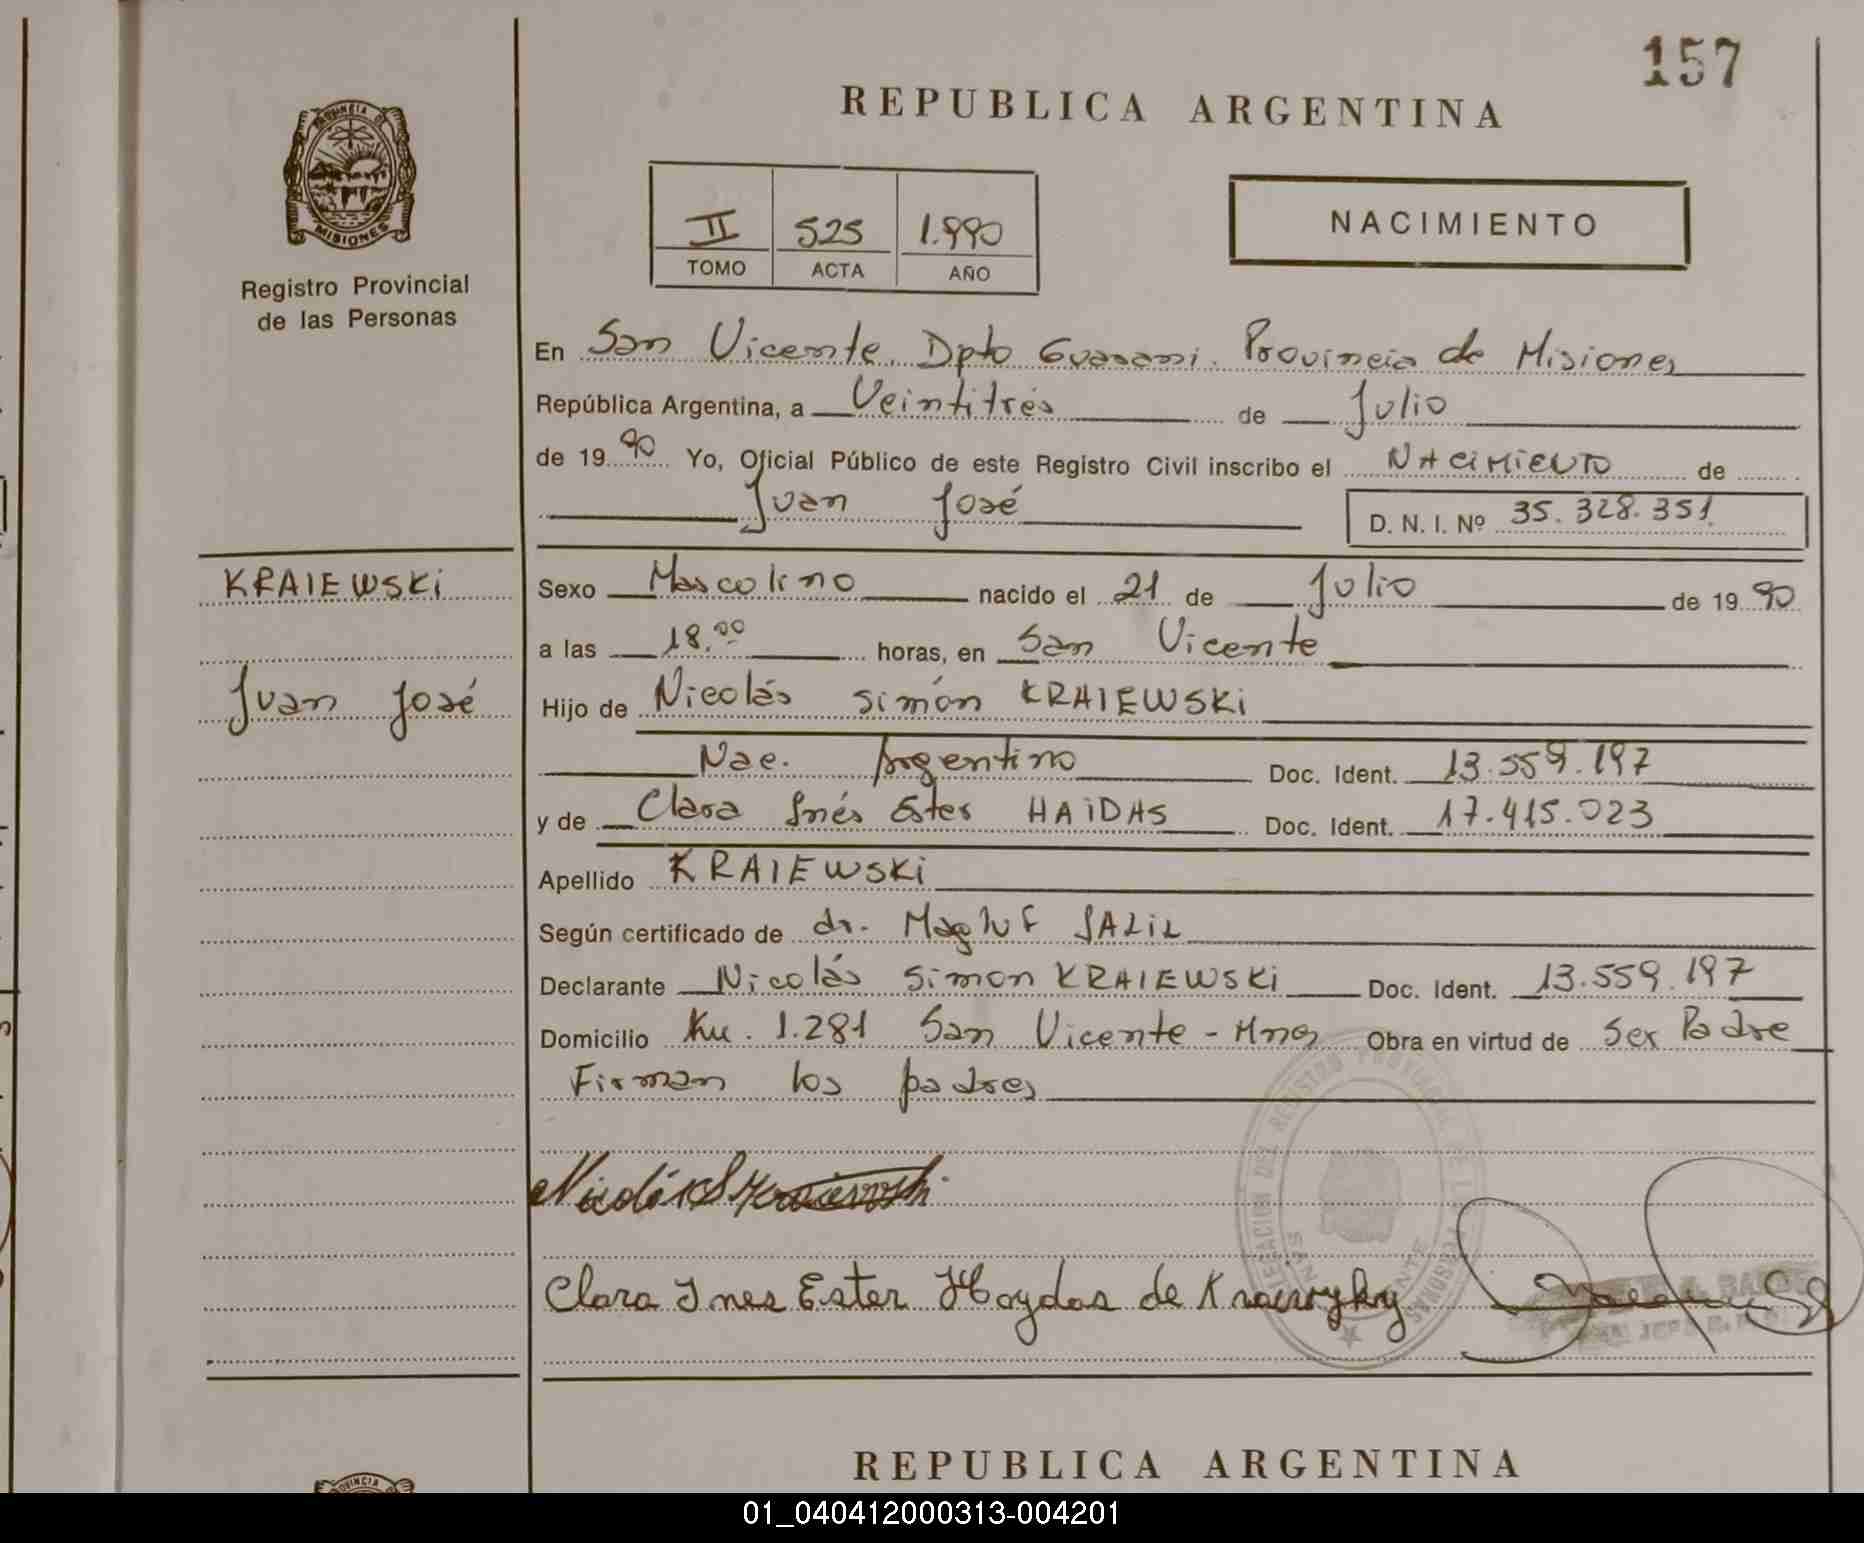 157
REPUBLICA ARGENTINA
PROVINCIA DE
MISIONES
Registro Provincial
de las Personas
II 525 1.990
TOMO ACTA AÑO
NACIMIENTO
En San Vicente. Dpto Guarani. Provincia de Misiones
República Argentina, a Veintitrés de Julio
de 1990 Yo, Oficial Público de este Registro Civil inscribo el NACIMIENTO de
Juan José D. N. I. Nº 35.328.351
KRAIEWSKi
Juan José
Sexo Mascolino nacido el 21 de Julio de 1990
a las 18.00 horas, en San Vicente
Hijo de Nicolás Simón KRAIEWSKi
Nac. Argentino Doc. Ident. 13.559.197
y de Clara Inés Ester HAiDAS Doc. Ident. 17.415.023
Apellido KRAIEWSKi
Según certificado de dr. SALiL
Declarante Nicolás Simon KRAIEWSKi Doc. Ident. 13.559.197
Domicilio Km. 1.281 San Vicente - Mnes Obra en virtud de Ser Padre
Firman los padres
Clara Ines Ester Haydas de
REPUBLICA ARGENTINA
01_040412000313-004201